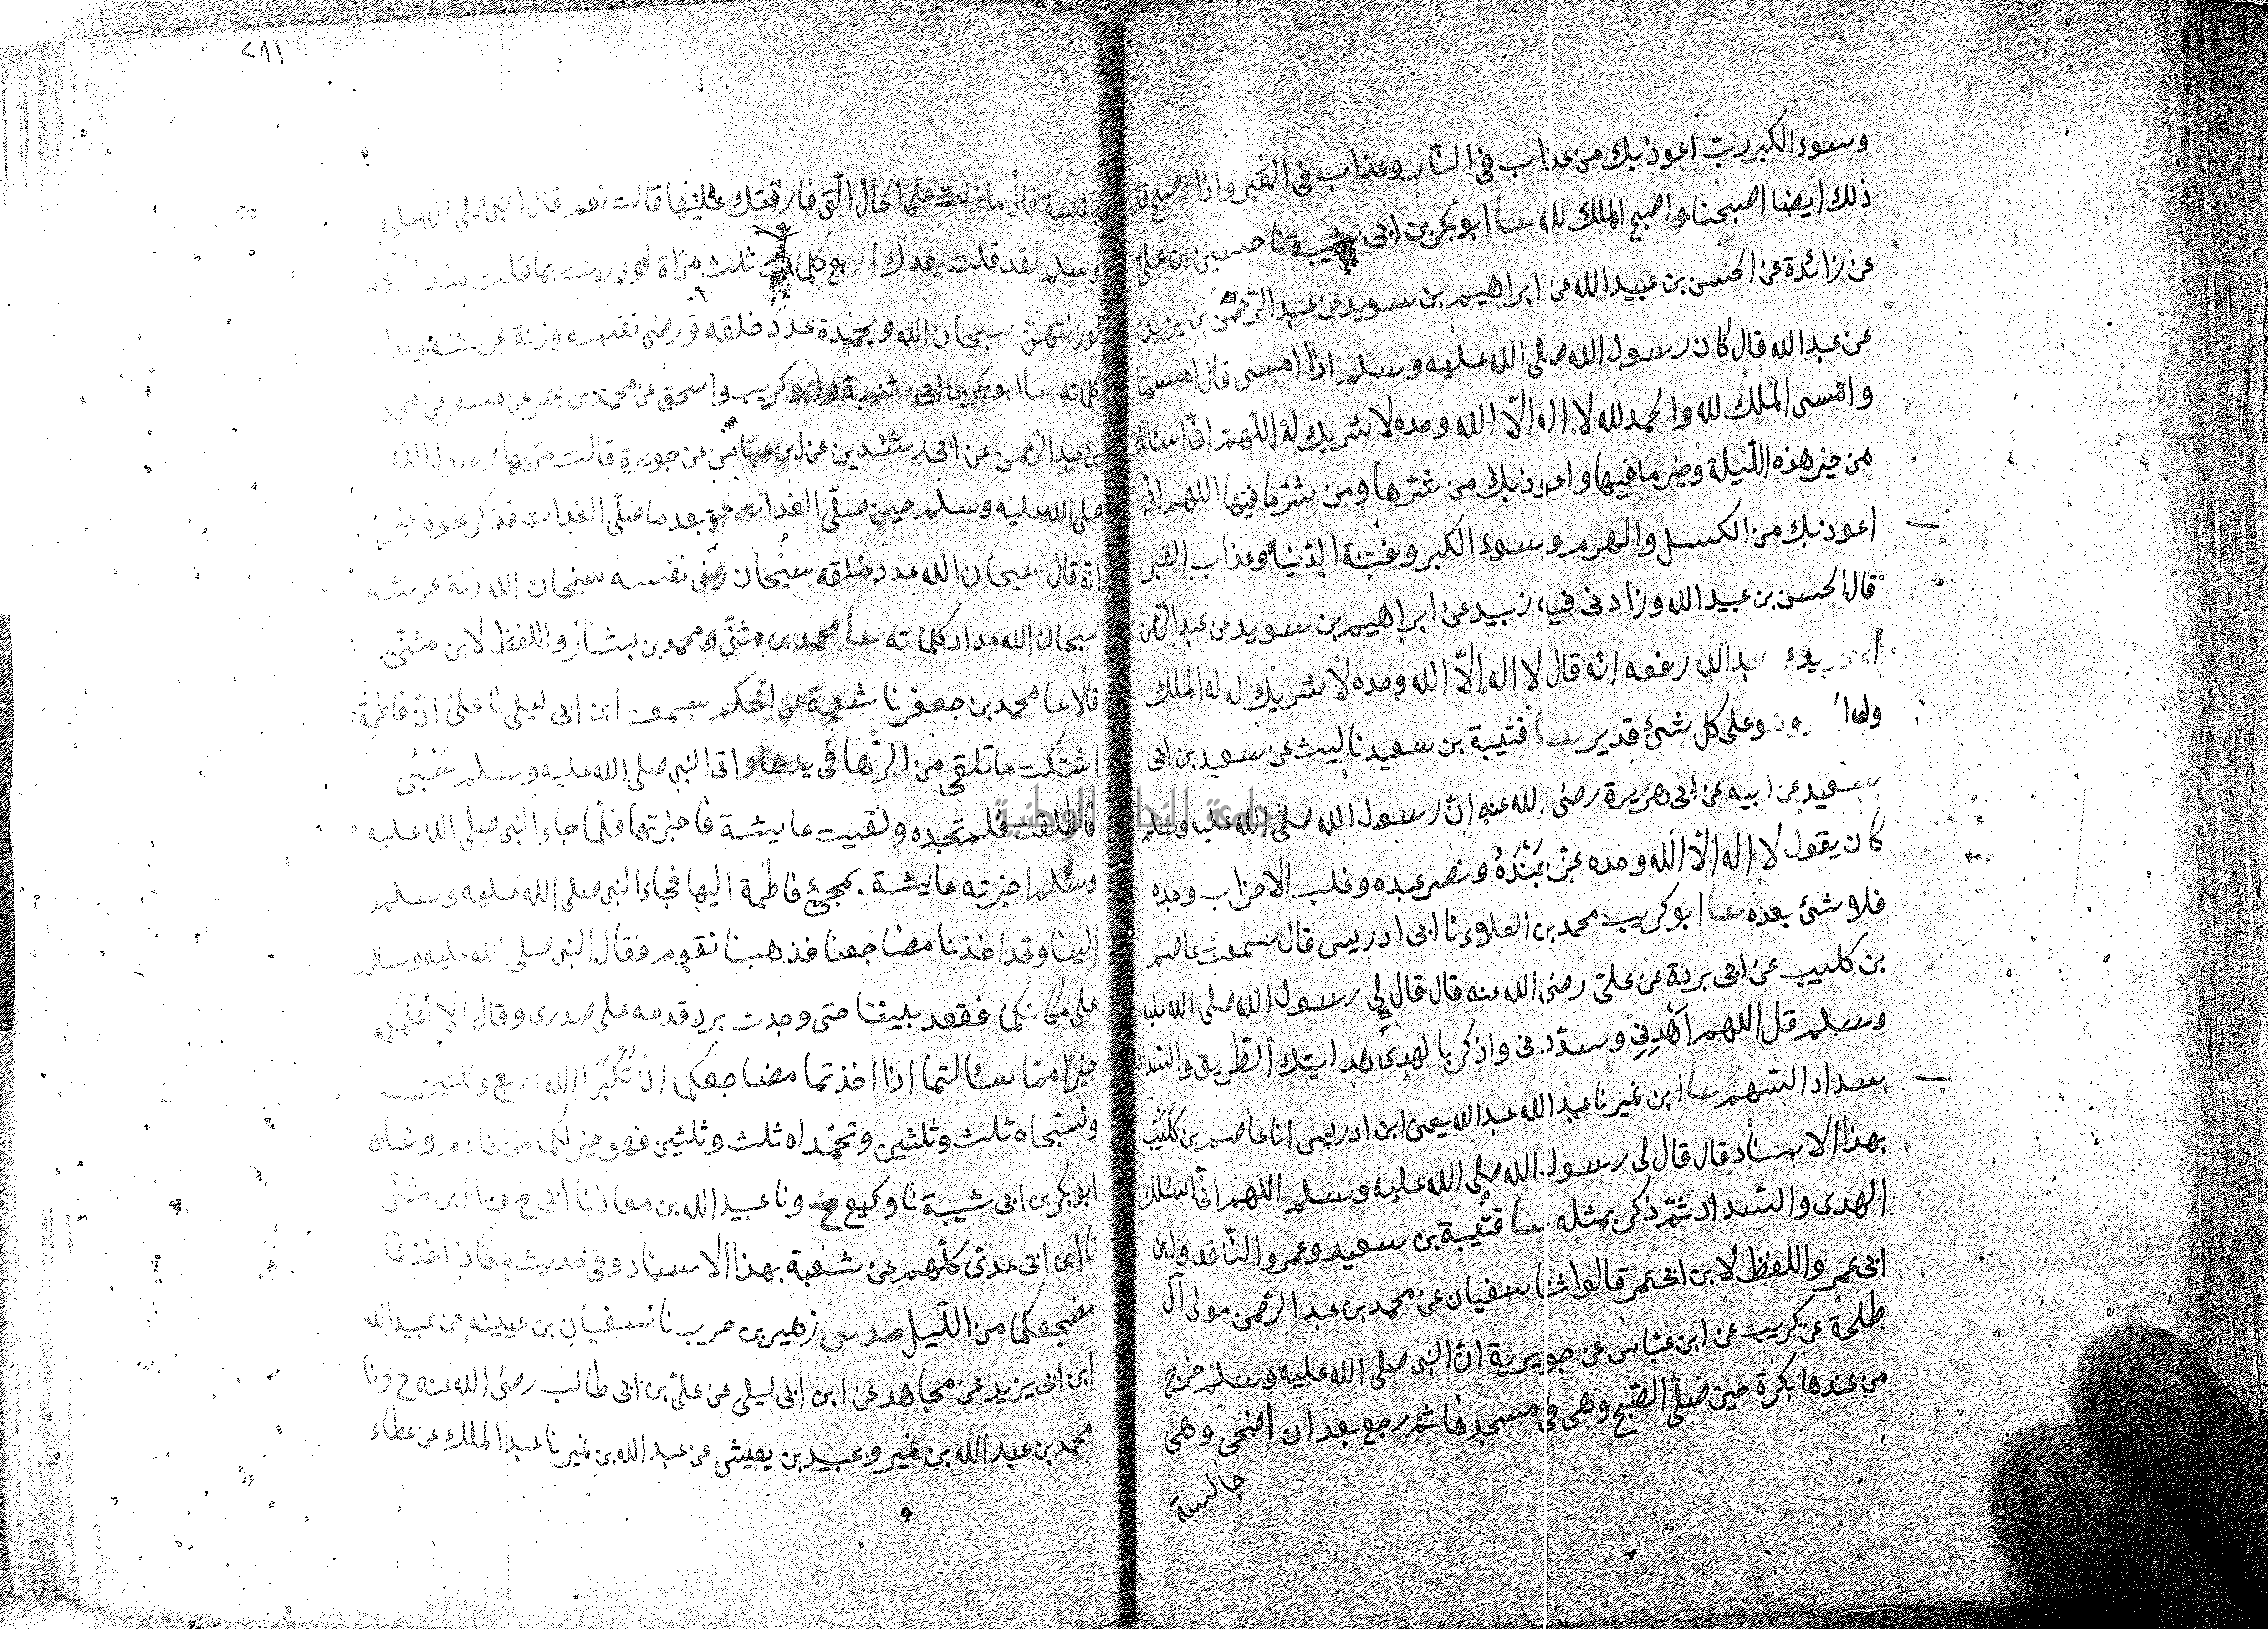 وسوء الكبر رب اعوذ بك من عذاب فى النار وعذاب فى القبر واذا اصبح قال
ذلك ايضا اصبحنا واصبح الملك لله حدثنا ابو بكر بن ابى شيبة نا حسين بن على
عن زائدة عن الحسن بن عبيد الله عن ابراهيم بن سويد عن عبد الرحمن بن يزيد
عن عبد الله قال كان رسول الله صلى الله عليه وسلم اذا امسى قال امسينا
وامسى الملك لله والحمد لله لا اله الا الله وحده لا شريك له اللهم انى اسئالك
من خير هذه الليلة وخير ما فيها واعوذ بك من شرها ومن شر ما فيها اللهم انى
اعوذ بك من الكسل والهرم وسوء الكبر وفتنة الدنيا وعذاب القبر
قال الحسن بن عبيد الله وزادنى فيه زبيد عن ابراهيم بن سويد عن عبد الرحمن
عبد الله رفعه انه قال لا اله الا الله وحده لا شريك له له الملك
وهو على كل شئ قدير حدثنا قتيبة بن سعيد نا ليث عن سعيد بن ابى
سعيد عن ابيه عن ابى هريرة رضى الله عنه ان رسول الله صلى الله عليه وسلم
كان يقول لا اله الا الله وحده عز جنده ونصر عبده وغلب الاحزاب وحده
فلا شئ بعده حدثنا ابو كريب محمد بن العلاء نا ابى ادريس قال سمعت عاصم
بن كليب عن ابى بردة عن على رضى الله عنه قال قال لى رسول الله صلى الله عليه
وسلم قل اللهم اهدنى وسددنى واذكر بالهدى هدايتك الطريق والسداد
سداد السهم حدثنا ابن نمير نا عبد الله عبد الله يعنى ابن ادريس انا عاصم بن كليب
بهذا الاسناد قال قال لى رسول الله صلى الله عليه وسلم اللهم انى اسئلك
الهدى والسداد ثم ذكر بمثله حدثنا قتيبة بن سعيد وعمرو الناقد وابن
ابى عمر واللفظ لابن ابى عمر قالوا ثنا سفيان عن محمد بن عبد الرحمن مولى آل
طلحة عن كريب عن ابن عباس عن جويرية ان النبى صلى الله عليه وسلم خرج
من عندها بكرة حين صلى الصبح وهى فى مسجدها ثم رجع بعد ان اضحى وهى
جالسة
٢٨١
جالسة قال ما زلت على الحال التى فارقتك عليها قالت نعم قال النبى صلى الله عليه
وسلم لقد قلت بعدك اربع كلمات ثلث مراة لو وزنت بما قلت منذ اليوم
لوزنتهن سبحان الله وبحمده عدد خلقه ورضى نفسه وزنة عرشه ومداد
كلماته حدثنا ابو بكر بن ابى شيبة وابو كريب واسحق عن محمد بن بشر عن مسعر عن محمد
بن عبد الرحمن عن ابى رشدين عن ابن عباس عن جويرة قالت مر بها رسول الله
صلى الله عليه وسلم حين صلى الغداة او بعد ما صلى الغداة فذكر نحوه غير
انه قال سبحان الله عدد خلقه سبحان رضى نفسه سبحان الله زنة عرشه
سبحان الله مداد كلماته حدثنا محمد بن مثنى ومحمد بن بشار واللفظ لابن مثنى
قالا حدثنا محمد بن جعفر نا شعبة عن الحكم سمعت ابن ابى ليلى نا على ان فاطمة
اشتكت ما تلقى من الرحا فى يدها واتى النبى صلى الله عليه وسلم سبى
فانطلقت فلم تجده ولقيت عايشة فاخبرتها فلما جاء النبى صلى الله عليه
وسلم اخبرته عايشة بمجئ فاطمة اليها فجاء النبى صلى الله عليه وسلم
الينا وقد اخذنا مضاجعنا فذهبنا نقوم فقال النبى صلى الله عليه وسلم
على مكانكما فقعد بيننا حتى وجدت برد قدمه على صدرى وقال الا اعلمكما
خيرا مما سئالتما اذا اخذتما مضاجعكما ان تكبرا الله اربع وثلثين
وتسبحاه ثلث وثلثين وتحمداه ثلث وثلثين فهو خير لكما من خادم وحدثناه
ابو بكر بن ابى شيبة نا وكيع ح ونا عبيد الله بن معاذ نا ابى ح ونا ابن مثنى
نا ابن ابى عدى كلهم عن شعبة بهذا الاسناد وفى حديث معاذ اخذتما
مضجعكما من الليل حدثنى زهير بن حرب نا سفيان بن عيينه عن عبيد الله
ابن ابى يزيد عن مجاهد عن ابن ابى ليلى عن على بن ابى طالب رضى الله عنه ح ونا
محمد بن عبد الله بن نمير وعبيد بن يعيش عن عبد الله بن نمير نا عبد الملك عن عطاء